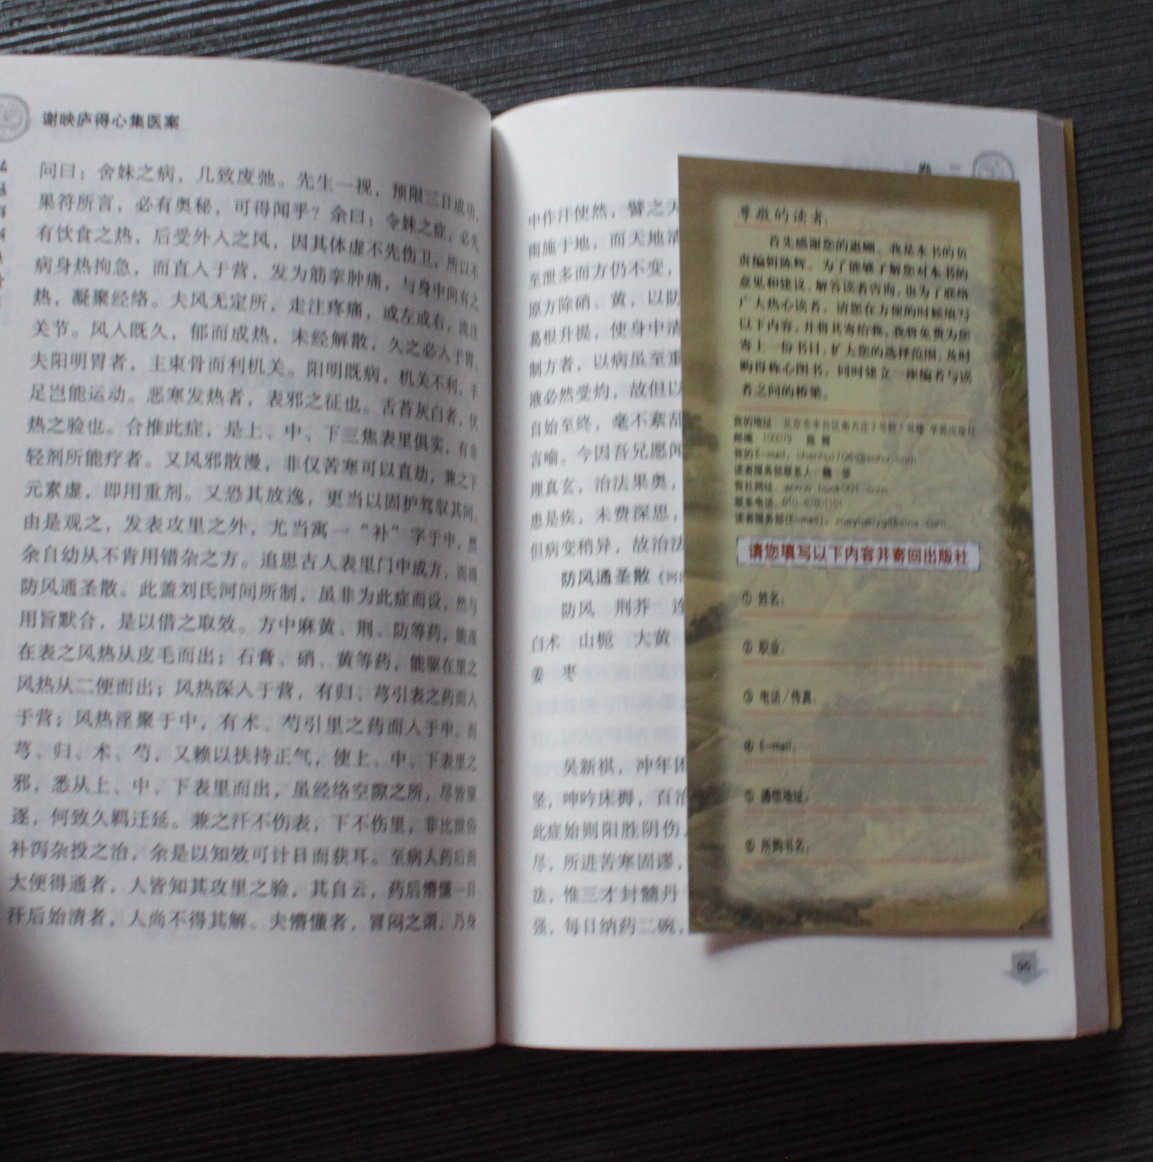 谢映庐得心集医案
问曰：舍妹之病，几致废弛。先生一视，预限三日成功，
果符所言，必有奥秘，可得闻乎？余曰：令妹之症，必先
有饮食之热，后受外入之风，因其体虚不先伤卫，所以不
病身热拘急，而直入于营，发为筋挛肿痛，与身中向有之
热，凝聚经络。夫风无定所，走注疼痛，或左或右，流注
关节。风入既久，郁而成热，未经解散，久之必入于胃。
夫阳明胃者，主束骨而利机关。阳明既病，机关不利，手
足岂能运动。恶寒发热者，表邪之征也。舌苔灰白者，伏
热之验也。合推此症，是上、中、下三焦表里俱实，有非
轻剂所能疗者。又风邪散漫，非仅苦寒可以直劫，兼之下
元素虚，即用重剂。又恐其放逸，更当以固护驾驭其间。
由是观之，发表攻里之外，尤当寓一“补”字于中，然
余自幼从不肯用错杂之方。追思古人表里门中成方，而得
防风通圣散。此盖刘氏河间所制，虽非为此症而设，然与
用旨默合，是以借之取效。方中麻黄、荆、防等药，能逐
在表之风热从皮毛而出；石膏、硝、黄等药，能驱在里之
风热从二便而出；风热深入于营，有归、芎引表之药而入
于营；风热淫聚于中，有术、芍引里之药而入于中。而
芎、归、术、芍，又赖以扶持正气，使上、中、下表里之
邪，悉从上、中、下表里而出，虽经络空隙之所，尽皆驱
逐，何致久羁迁延。兼之汗不伤表，下不伤里，非比世俗
补泻杂投之治，余是以知效可计日而获耳。至病人药后而
大便得通者，人皆知其攻里之验，其自云，药后懵懂一日
汗后始清者，人尚不得其解。夫懵懂者，冒闷之谓，乃身
卷 二
中作汗使然，譬之天
雨施于地，而天地清
至泄多而方仍不变，
原方除硝、黄，以防
葛根升提，使身中清
制方者，以病虽至重
液必然受灼，故但以
自始至终，毫不紊乱
言喻。今因吾兄愿闻
理真玄，治法果奥，
患是疾，未费深思，
但病变稍异，故治法
防风通圣散
防风　荆芥　连
白术　山栀　大黄
姜　枣
吴新祺，冲年因
坚，呻吟床褥，百治
此症始则阳胜阴伤，
尽，所进苦寒固谬，
法，惟三才封髓丹
强，每日纳药二碗，
尊敬的读者：
首先感谢您的惠顾。我是本书的负
责编辑陈辉。为了能够了解您对本书的
意见和建议，解答读者咨询，也为了联络
广大热心读者，请您在方便的时候填写
以下内容，并将其寄给我，我将免费为您
寄上一份书目，扩大您的选择范围，及时
购得称心图书，同时建立一座编者与读
者之间的桥梁。
我的地址：北京市丰台区南方庄2号院1号楼 学苑出版社
邮编：100079　陈辉
请您填写以下内容并寄回出版社
① 姓名：
② 职业：
③ 电话／传真：
④ E-mail：
⑤ 通信地址：
⑥ 所购书名：